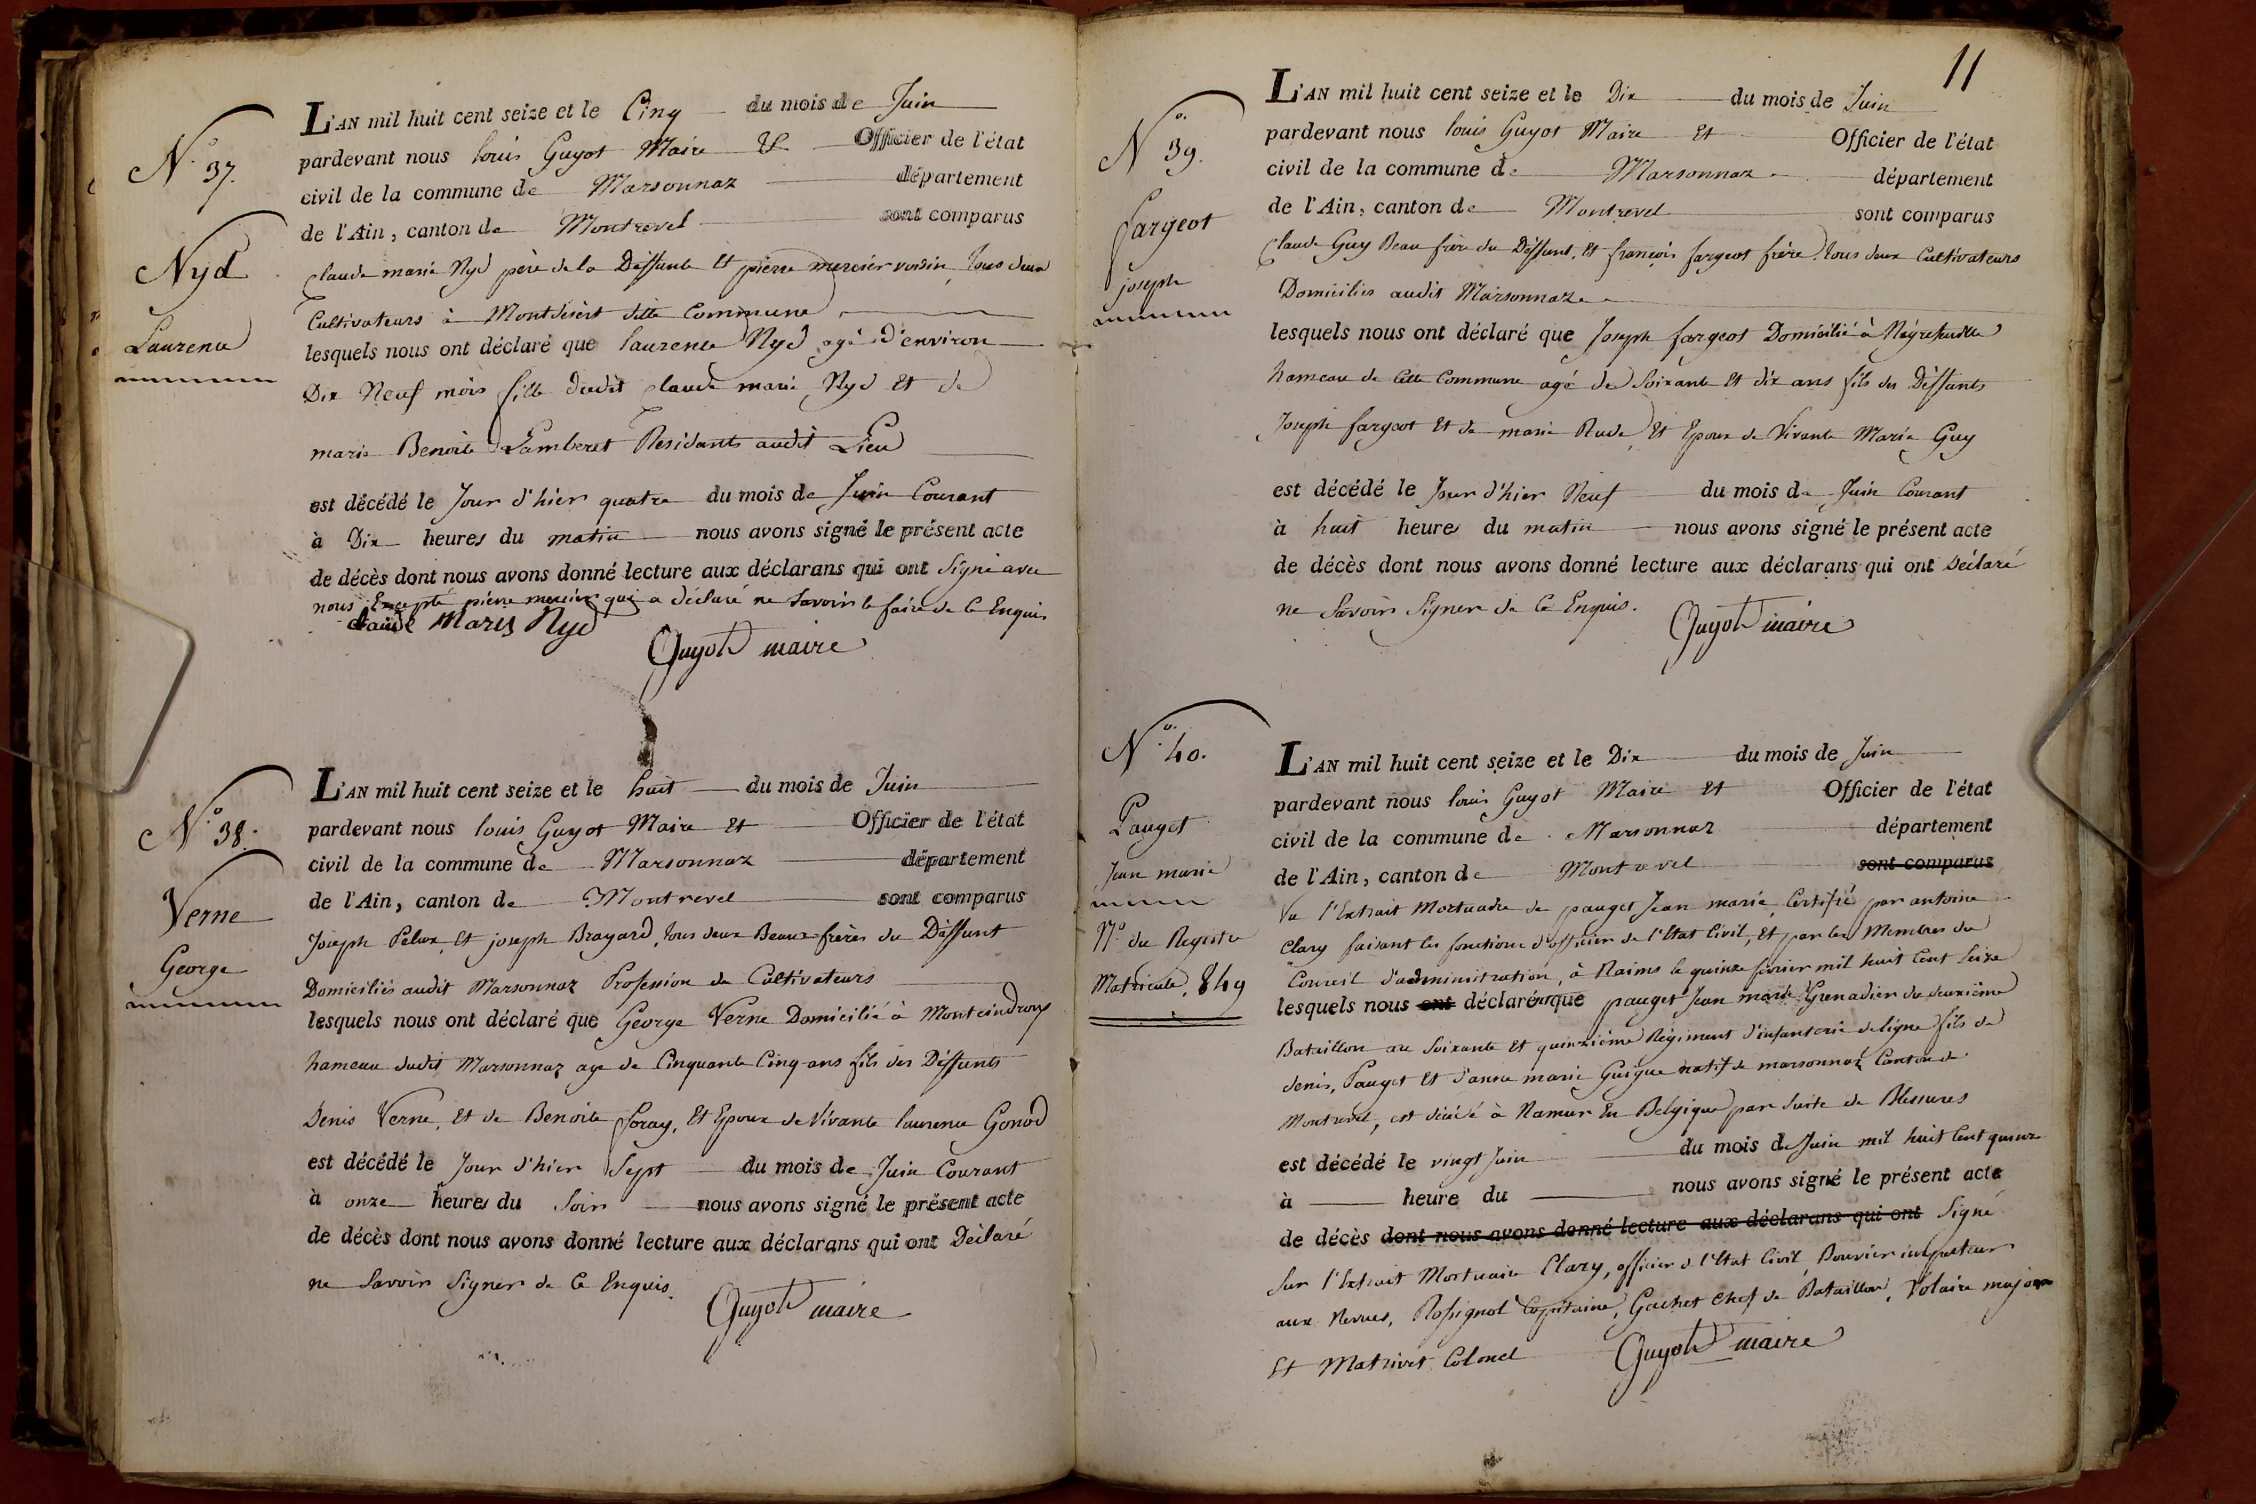 N.° 37.
Nyd
Laurence
L'AN mil huit cent seize et le Cinq du mois de Juin
pardevant nous louis Guyot Maire & Officier de l'état
civil de la commune de Marsonnaz département
de l'Ain, canton de Montrevel sont comparus
Claude marie Nyd père de la Deffunte Et pierre mercier voisin, tous deux
Cultivateurs à Montdésert ditte Commune
lesquels nous ont déclaré que laurence Nyd agé d'environ
Dix Neuf mois fille dudit Claude marie Nyd Et de
marie Benoite Lamberet Residants audit Lieu
est décédé le Jour d'hier quatre du mois de Juin Courant
à Dix heures du matin nous avons signé le présent acte
de décès dont nous avons donné lecture aux déclarans qui ont Signé avec
nous Excepté pierre mercier qui a déclaré ne Savoir le faire de Ce Enquis
claude Marie Nyd
Guyot maire
N.° 38.
Verne
George
L'AN mil huit cent seize et le huit du mois de Juin
pardevant nous louis Guyot Maire Et Officier de l'état
civil de la commune de Marsonnaz département
de l'Ain, canton de Montrevel sont comparus
Joseph Pelux Et joseph Brayard, tous deux Beaux frères du Deffunt
Domiciliés audit Marsonnaz Profession de Cultivateurs
lesquels nous ont déclaré que George Verne Domicilié à Monteindroux
hameau dudit Marsonnaz age de Cinquante Cinq ans fils des Deffunts
Denis Verne, Et de Benoite foray, Et Epoux de Vivante laurence Gonod
est décédé le Jour d'hier Sept du mois de Juin Courant
à onze heures du Soir nous avons signé le présent acte
de décès dont nous avons donné lecture aux déclarans qui ont Déclaré
ne Savoir Signer de Ce Enquis.
Guyot maire
11
N.° 39.
fargeot
joseph
L'AN mil huit cent seize et le Dix du mois de Juin
pardevant nous louis Guyot Maire Et Officier de l'état
civil de la commune de Marsonnaz département
de l'Ain, canton de Montrevel sont comparus
Claude Guy Beau frère du Déffunt, Et françois fargeot frère, tous deux Cultivateurs
Domiciliés audit Marsonnaz
lesquels nous ont déclaré que Joseph fargeot Domicilié à
hameau de Cette Commune agé de Soixante Et dix ans fils des Déffunts
Joseph fargeot Et de marie Rude, Et Epoux de Vivante Marie Guy
est décédé le Jour d'hier Neuf du mois de Juin Courant
à huit heures du matin nous avons signé le présent acte
de décès dont nous avons donné lecture aux déclarans qui ont Déclaré
ne Savoir Signer de Ce Enquis.
Guyot maire
N.° 40.
Pauget
Jean marie
N.° du Registre
Matricule, 849
L'AN mil huit cent seize et le Dix du mois de Juin
pardevant nous louis Guyot Maire Et Officier de l'état
civil de la commune de Marsonnaz département
de l'Ain, canton de Montrevel sont comparus
Vu l'Extrait Mortuaire de pauget Jean marie, Certifié par antoine
Clary faisant les fonctions d'officier de l'Etat Civil, Et par les Membres du
Conseil d'administration, à Raims le quinze février mil huit Cent Seize
lesquels nous ont déclaré que pauget Jean marie Grenadier du deuxième
Bataillon au Soixante Et quinzième Régiment d'infanterie de ligne fils de
denis, Pauget Et d'anne marie Guigue natif de marsonnaz Canton de
Montrevel, est décédé à Namur En Belgique par Suite de Blessures
est décédé le vingt Juin du mois de Juin mil huit Cent quinze
à heure du nous avons signé le présent acte
de décès dont nous avons donné lecture aux déclarans qui ont Signé
Sur l'Extrait Mortuaire Clary, officier d l'Etat Civil, Bouvier inspecteur
aux Revues, Rossignol Capitaine, Gachet Chef de Bataillon, Volaire major
Et Matrivet Colonel
Guyot maire